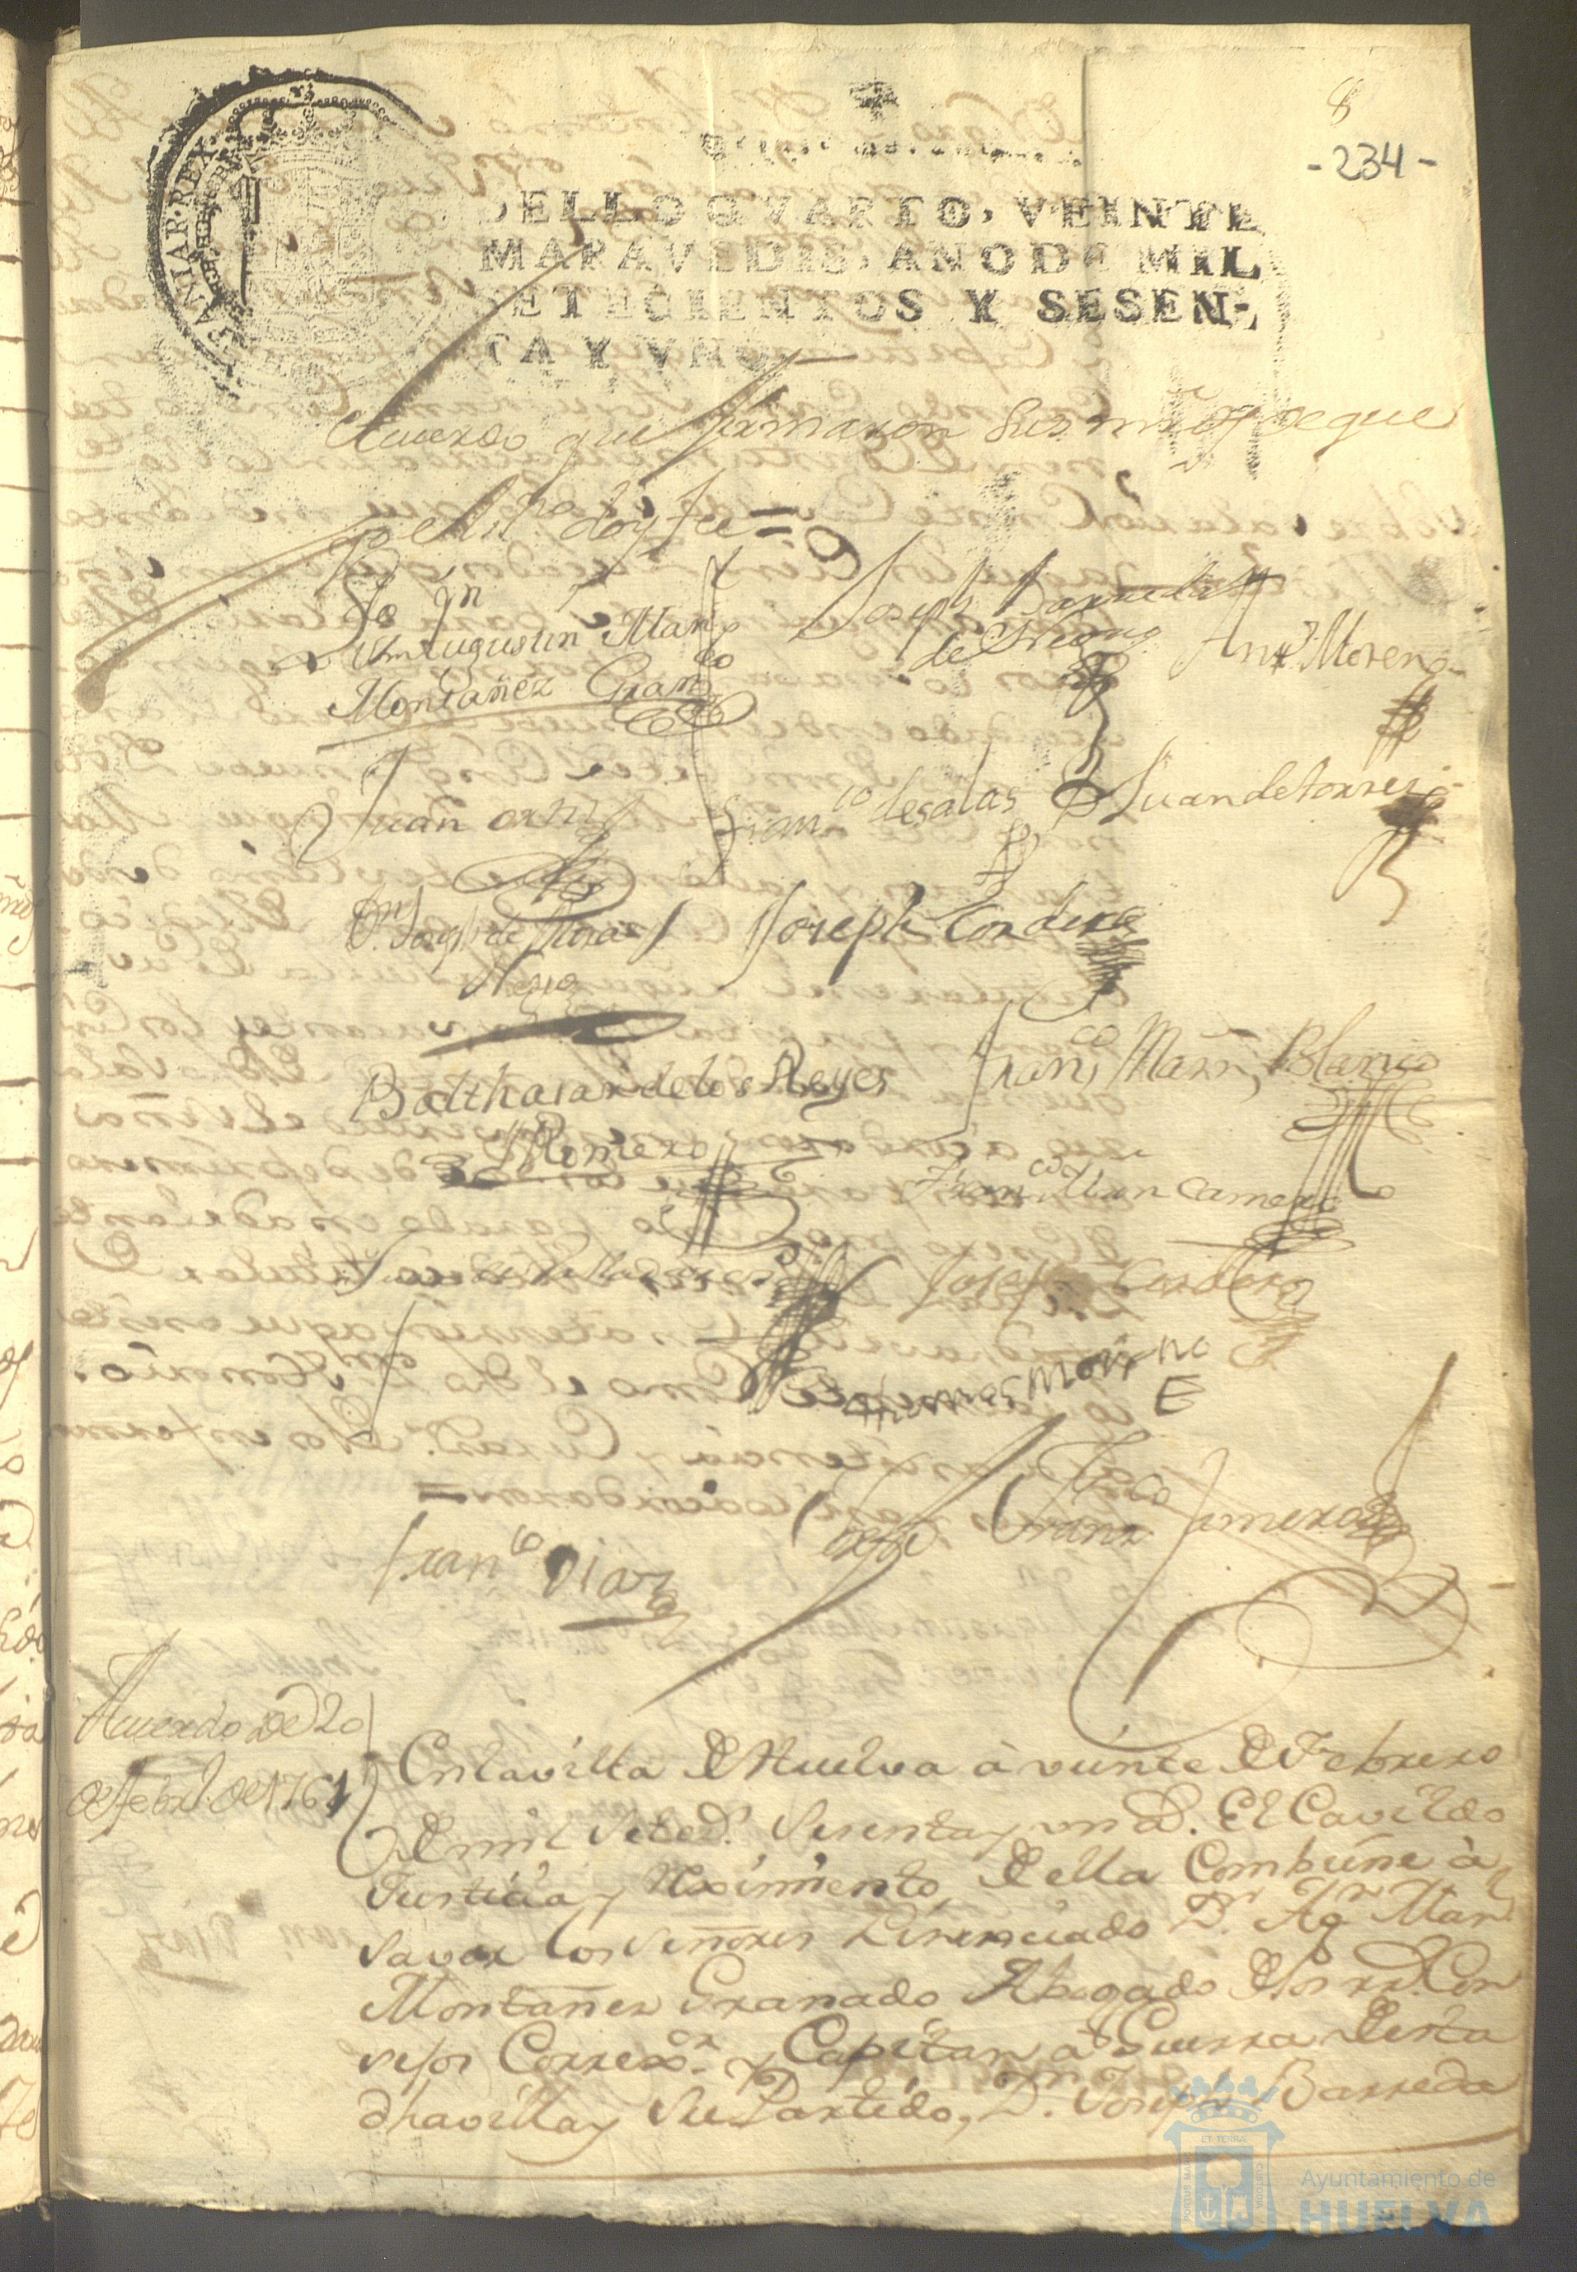 8
-234-
SELLO QVARTO, VEINTE
MARAVEDIS, AÑO DE MIL
SETECIENTOS Y SESEN-
TA Y VNO
Acuerdo que firmaron sus mrds de que
yo el ess.no doy fee =
Lido Dn
Augustin Marn
Montañez Grando
Joseph Barreda
de
Anto. Moreno
Juan
Franco de salas
Juan de torres
Dn Joseph de
Joseph Cordero
Balthasar de los Reyes
Romero
Franco Marn Blanco
Franco Mrn Camero
Joseph Cordero
Thomas Moreno
Franco Diaz
Franco Romero
Acuerdo de 20
de febro. de 1761
En la villa de Huelva à veinte de Febrero
de mil setesos. sesenta y un as. El Cavildo
Justicia y Reximiento de ella Combiene à
saver los señores Lisenciado Dn Agn Marn
Montañez Granado Abogado de los rs. Con
sejos Correxor. y Capitan à Guerra de esta
dha villa y su Partido, Dn. Joseph Barreda
PORTUS MARIS
ET TERRÆ
CUSTODIA
Ayuntamiento de
HUELVA